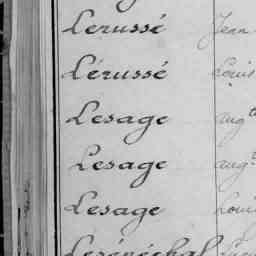 Lerussé Jean
Lérussé Louis
Lesage Augte
Lesage Augte
Lesage Louis
Lesénéchal